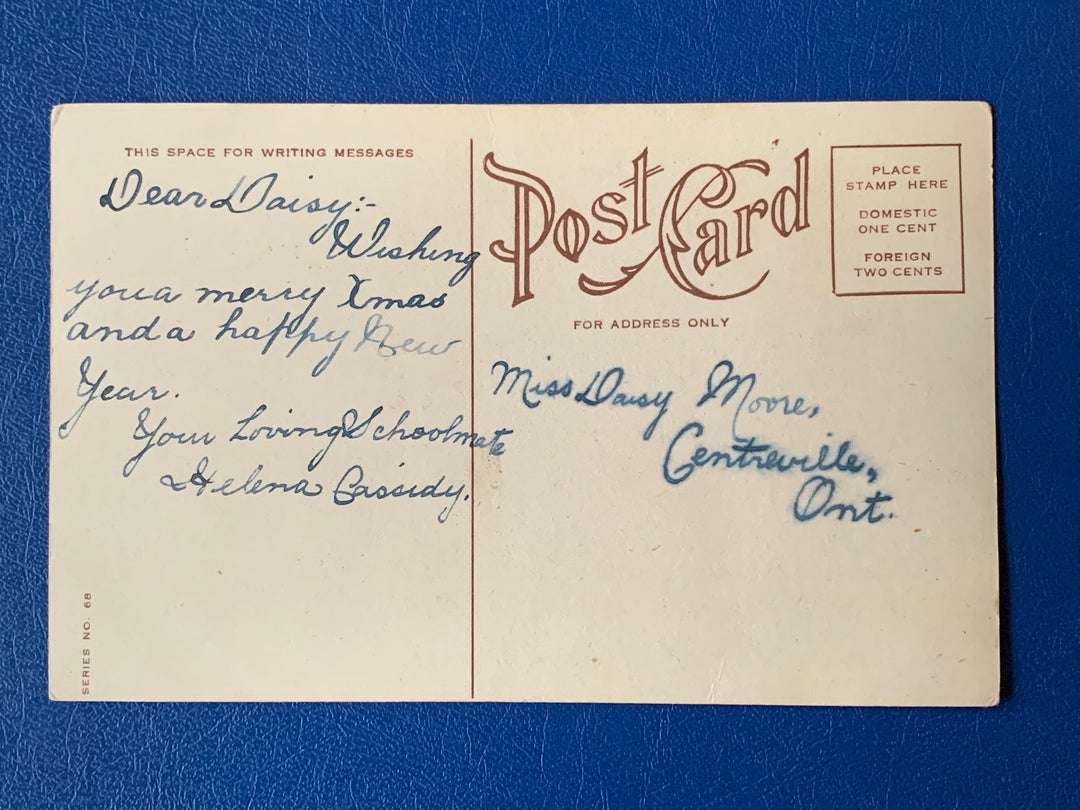 THIS SPACE FOR WRITING MESSAGES
Dear Daisy:-
Wishing
you a merry Xmas
and a happy New
Year.
Your Loving Schoolmate
Helena Cassidy.
SERIES NO. 68
Post Card
FOR ADDRESS ONLY
PLACE
STAMP HERE
DOMESTIC
ONE CENT
FOREIGN
TWO CENTS
Miss Daisy Moore,
Centreville,
Ont.